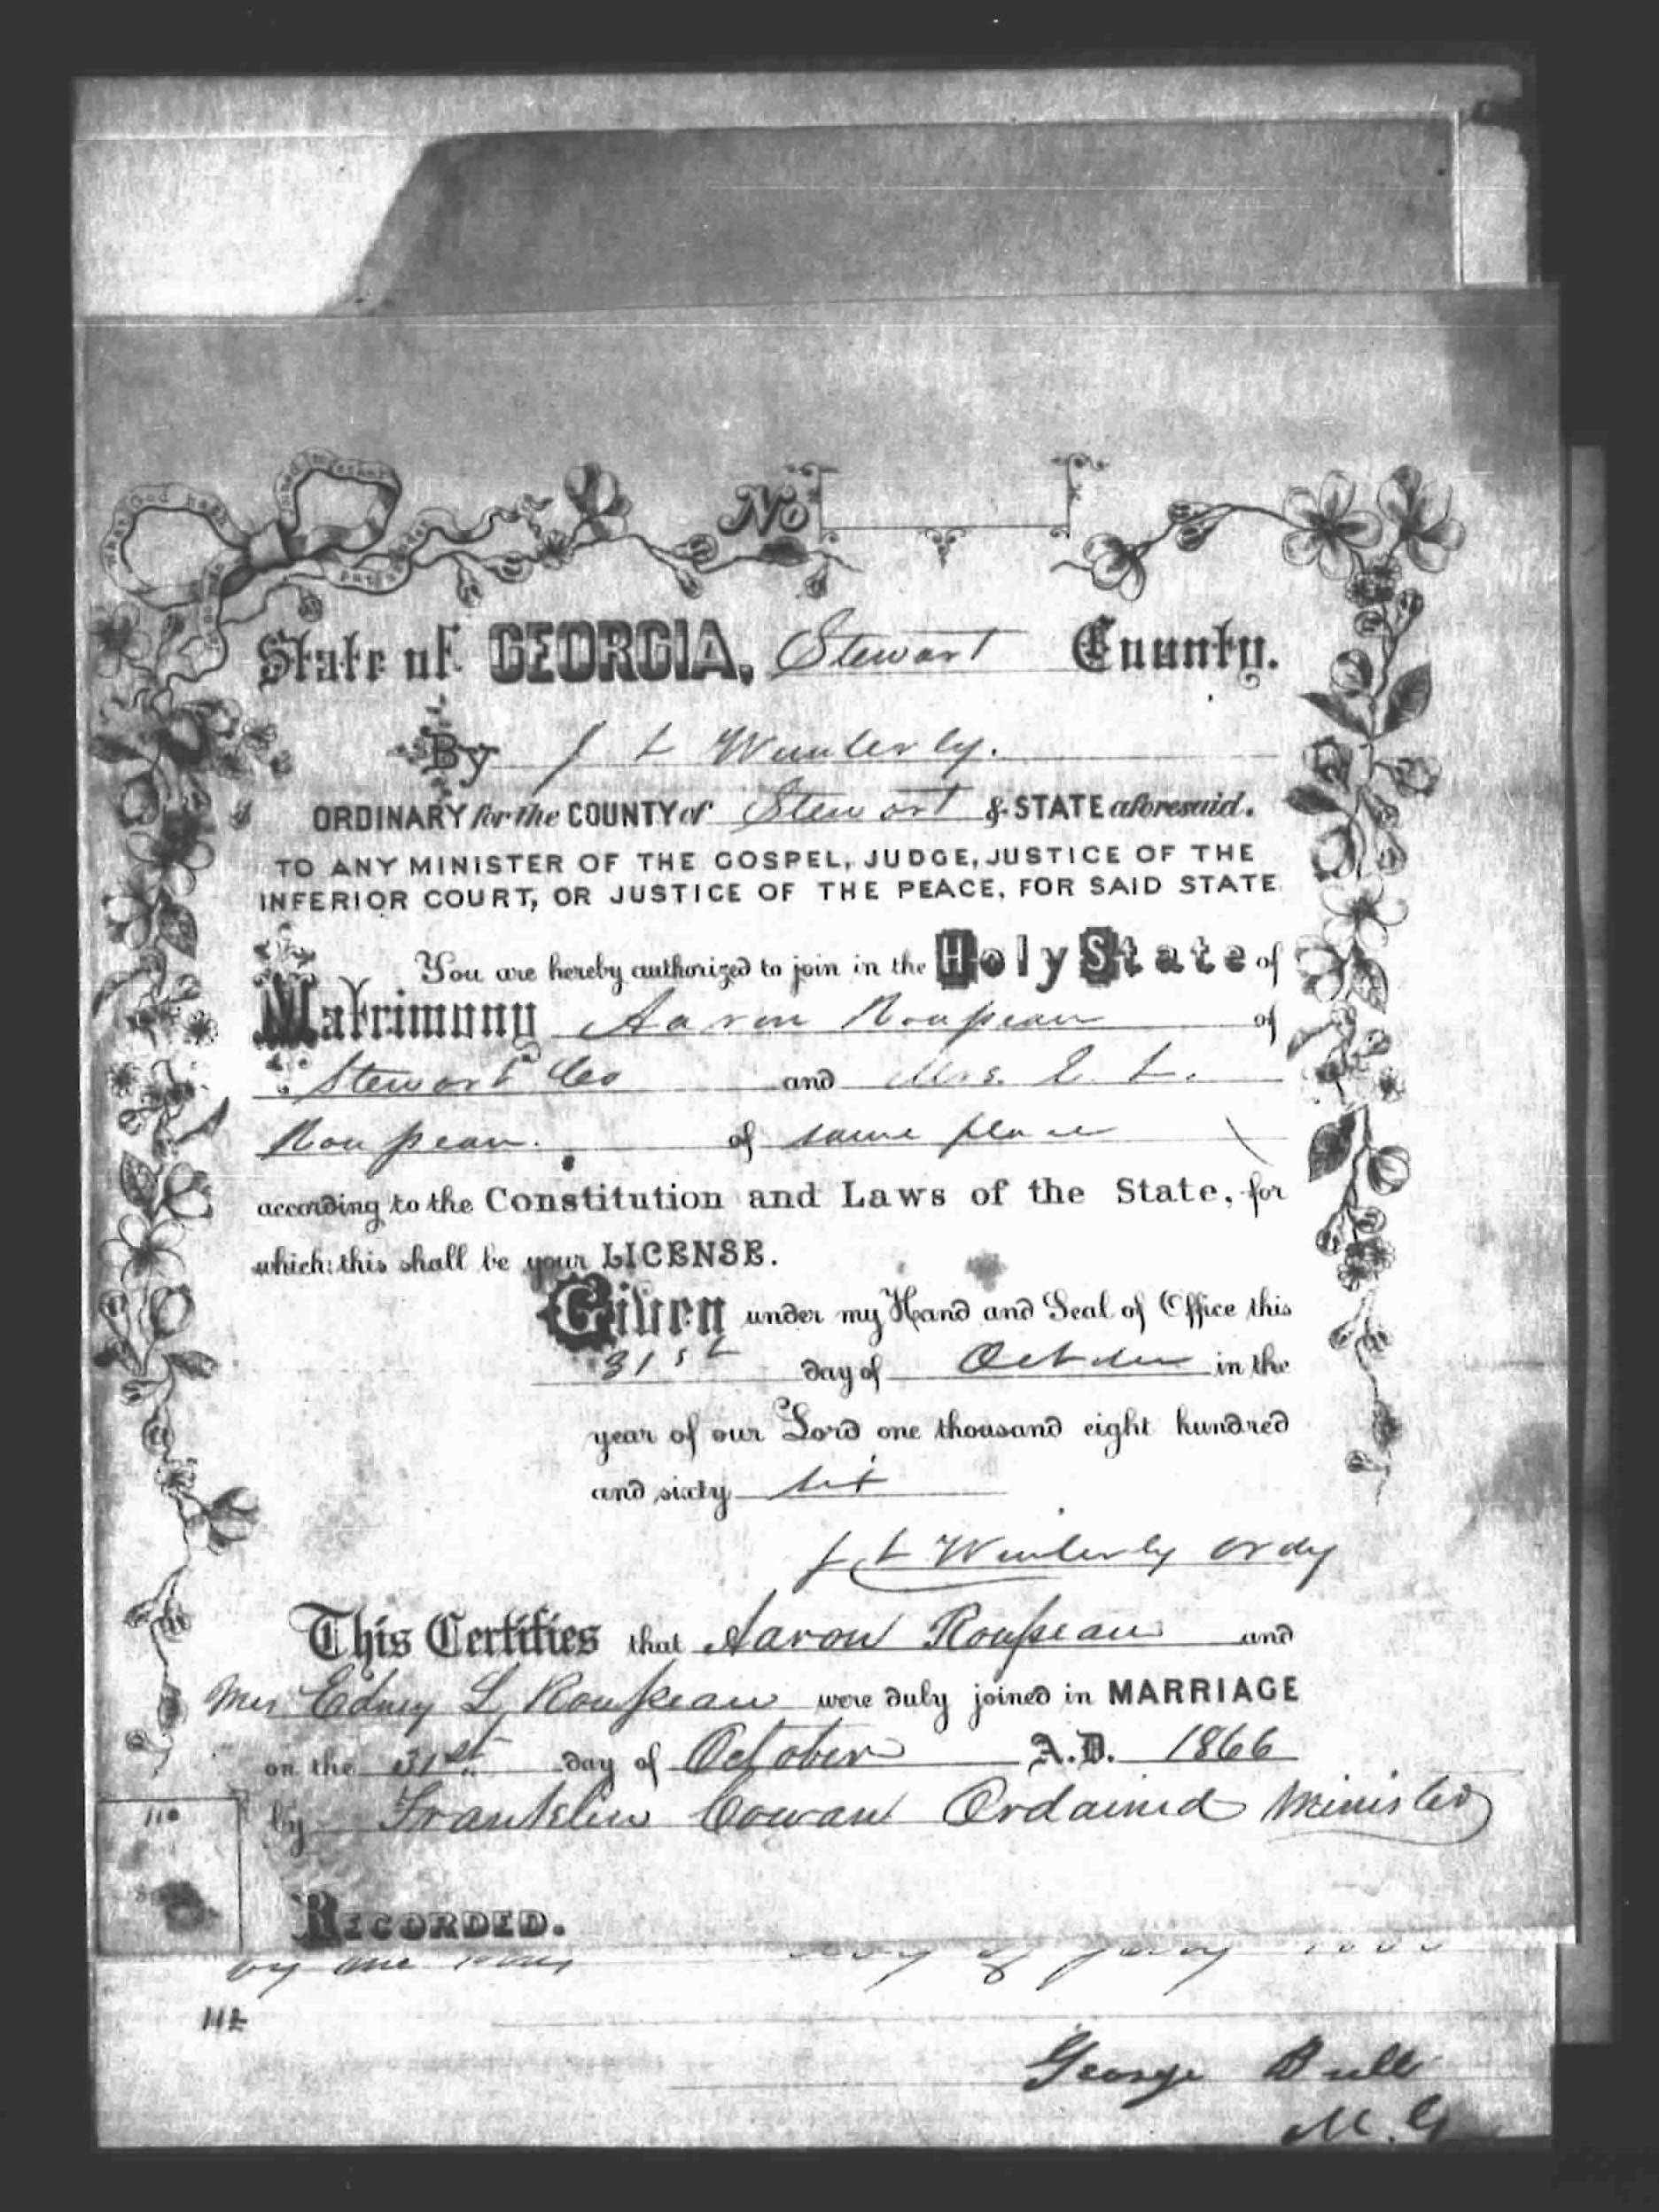 No
State of GEORGIA, Stewart County.
By J L Wimberly.
ORDINARY for the COUNTY of Stewart & STATE aforesaid.
TO ANY MINISTER OF THE GOSPEL, JUDGE, JUSTICE OF THE
INFERIOR COURT, OR JUSTICE OF THE PEACE, FOR SAID STATE
You are hereby authorized to join in the Holy State of
Matrimony Aaron Rousseau of
Stewart Co and Mrs. E. L.
Rousseau. of same place
according to the Constitution and Laws of the State, for
which this shall be your LICENSE.
Given under my Hand and Seal of Office this
31st day of October in the
year of our Lord one thousand eight hundred
and sixty six
J L Wimberly Ordy
This Certifies that Aaron Rousseau and
Mrs Edney L Rousseau were duly joined in MARRIAGE
on the 31st day of October A.D. 1866
by Franklin Cowan Ordained Minister
110
RECORDED.
by me day of
112
George Bull
M. G